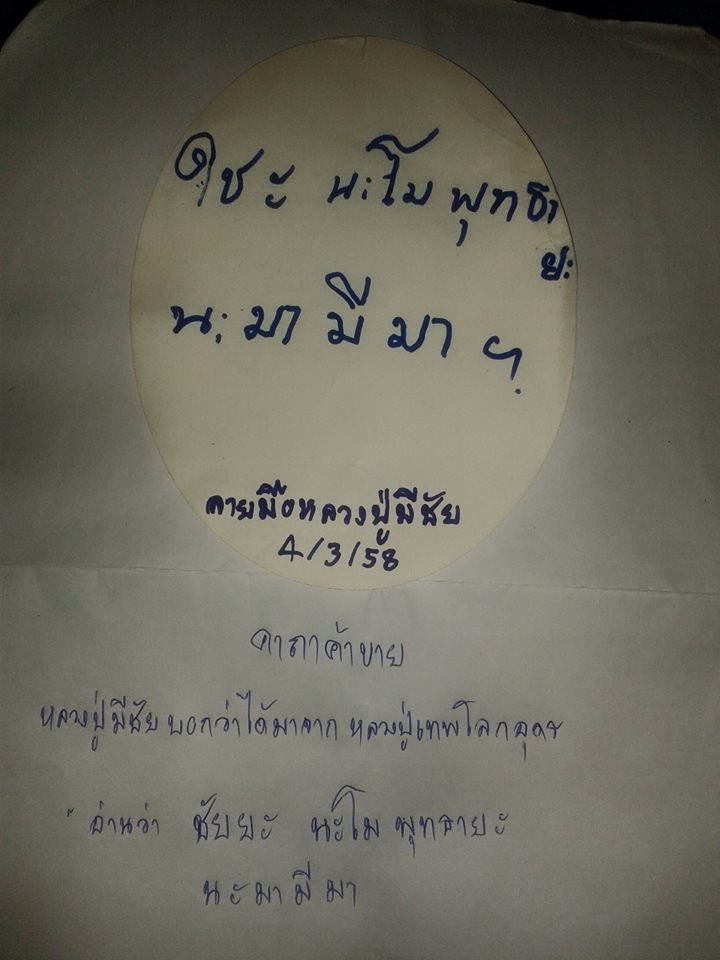 ไชะ นะโม พุทธา
ยะ
นะ มา มี มา ฯ
ลายมือหลวงปู่มีชัย
4/3/58
คาถาค้าขาย
หลวงปู่มีชัย บอกว่าได้มาจาก หลวงปู่เทพโลกอุดร
" อ่านว่า ชัยยะ นะโม พุทธายะ
นะ มา มี มา